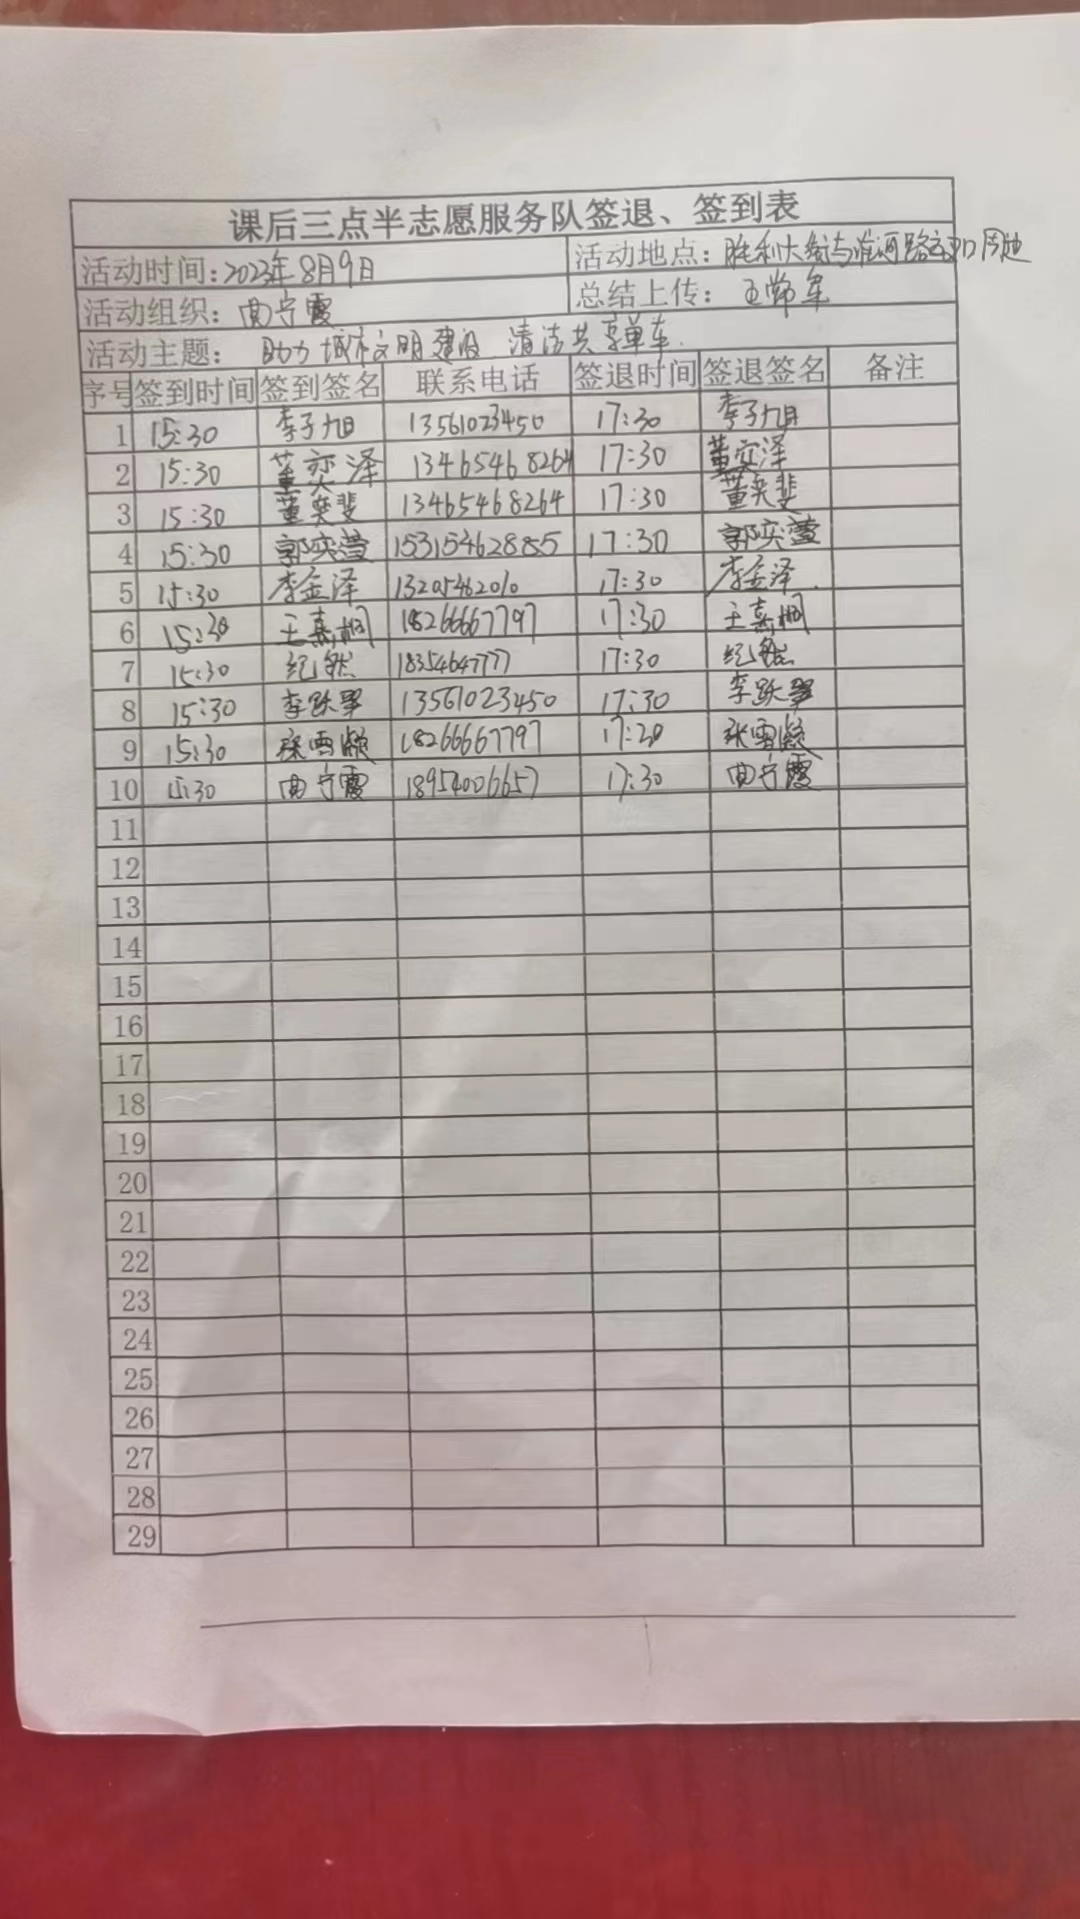 课后三点半志愿服务队签退、签到表
活动时间：2023年8月9日 活动地点：胜利大街与淮河路交叉口周边
活动组织：曲宁霞 总结上传：王常军
活动主题：助力城市文明建设 清洁共享单车
序号 签到时间 签到签名 联系电话 签退时间 签退签名 备注
1 15:30 李子旭 13561023450 17:30 李子旭
2 15:30 董奕泽 13465468264 17:30 董奕泽
3 15:30 董奕斐 13465468264 17:30 董奕斐
4 15:30 郭奕萱 15315462885 17:30 郭奕萱
5 15:30 李金泽 13205462010 17:30 李金泽
6 15:30 王嘉桐 18266667797 17:30 王嘉桐
7 15:30 纪然 18354647777 17:30 纪然
8 15:30 李跃 13561023450 17:30 李跃
9 15:30 张雪凝 18266667797 17:20 张雪凝
10 15:30 曲宁霞 18954006657 17:30 曲宁霞
11
12
13
14
15
16
17
18
19
20
21
22
23
24
25
26
27
28
29